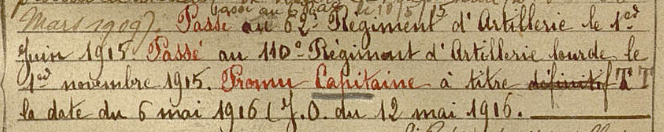 Mars 1909). Passé au 62e Régiment d'Artillerie le 1er
Juin 1915. Passé au 110e Régiment d'Artillerie lourde le
1er novembre 1915. Promu Capitaine à titre définitif T T
la date du 6 mai 1916 (J.O. du 12 mai 1916.